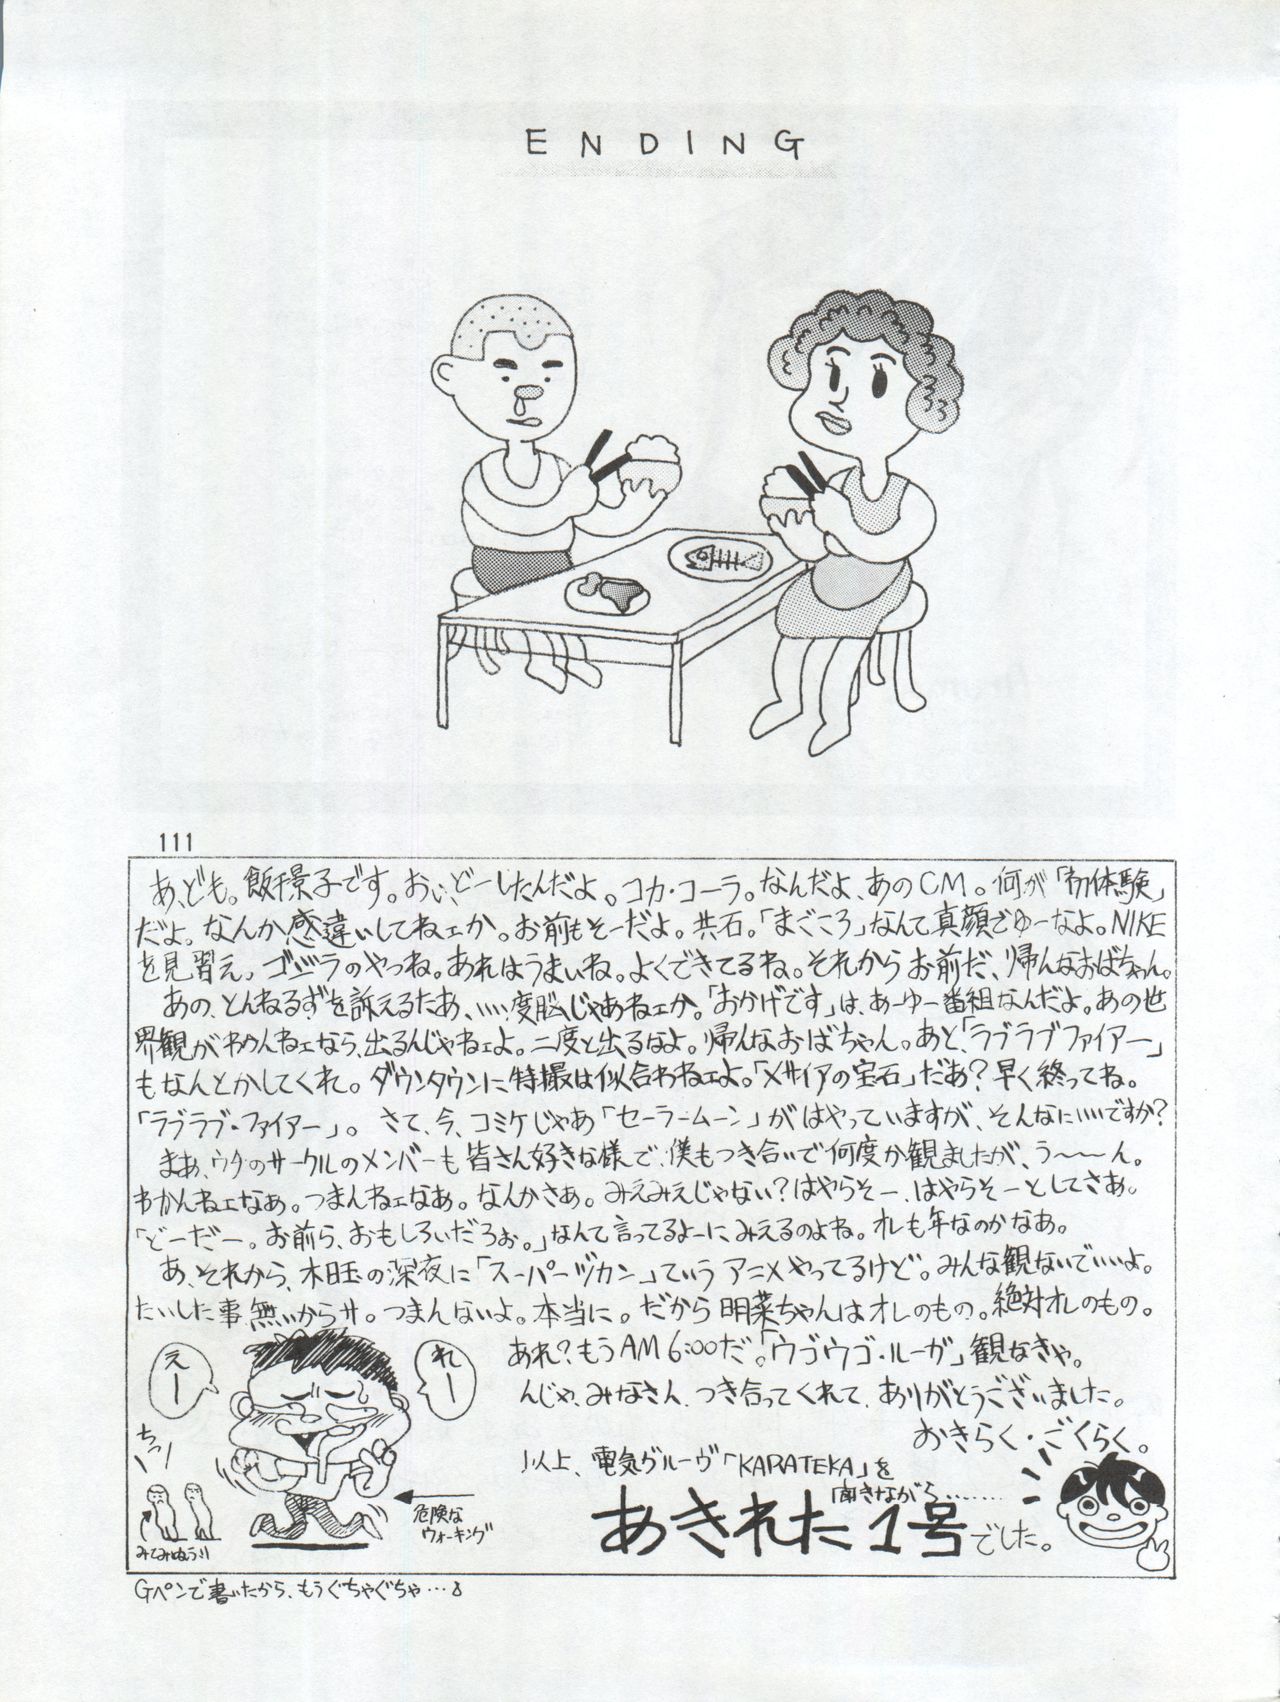 ENDING
111
あ、ども。飯干景子です。おい、どーしたんだよ。コカ・コーラ。なんだよ、あのCM。何が「初体験」
だよ。なんか感違いしてねェか。お前もそーだよ。共石。「まごころ」なんて真顔でゆーなよ。NIKE
を見習え。ゴジラのやつね。あれはうまいね。よくできてるね。それからお前だ、帰んなおばちゃん。
あの、とんねるずを訴えるたあ、いい度胸じゃあねェか。「おかげです」は、あーゆー番組なんだよ。あの世
界観がわかんねェなら、出るんじゃねェよ。二度と出るなよ。帰んなおばちゃん。あと、「ラブラブファイアー」
もなんとかしてくれ。ダウンタウンに特撮は似合わねェよ。「メサイアの宝石」だあ？早く終ってね。
「ラブラブ・ファイアー」。さて、今、コミケじゃあ「セーラームーン」がはやっていますが、そんなにいいですか？
まぁ、ウチのサークルのメンバーも皆さん好きな様で、僕もつき合いで何度か観ましたが、う〜〜ん。
わかんねェなぁ。つまんねェなぁ。なんかさあ。みえみえじゃない？はやらそー、はやらそーとしてさぁ。
「どーだー。お前ら、おもしろいだろぉ。」なんて言ってるよーにみえるのよね。オレも年なのかなあ。
あ、それから、木曜の深夜に「スーパーヅカン」ていうアニメやってるけど。みんな観ないでいいよ。
たいした事無いからサ。つまんないよ。本当に。だから明菜ちゃんはオレのもの。絶対オレのもの。
あれ？もうAM6:00だ。「ウゴウゴ・ルーガ」観なきゃ。
んじゃ、みなさん、つき合ってくれて、ありがとうございました。
おきらく・ごくらく。
以上、電気グルーヴ「KARATEKA」を
聞きながら………
あきれた1号でした。
えー
れー
ちっ
みてみぬう!!
危険な
ウォーキング
Gペンで書いたから、もうぐちゃぐちゃ…♪